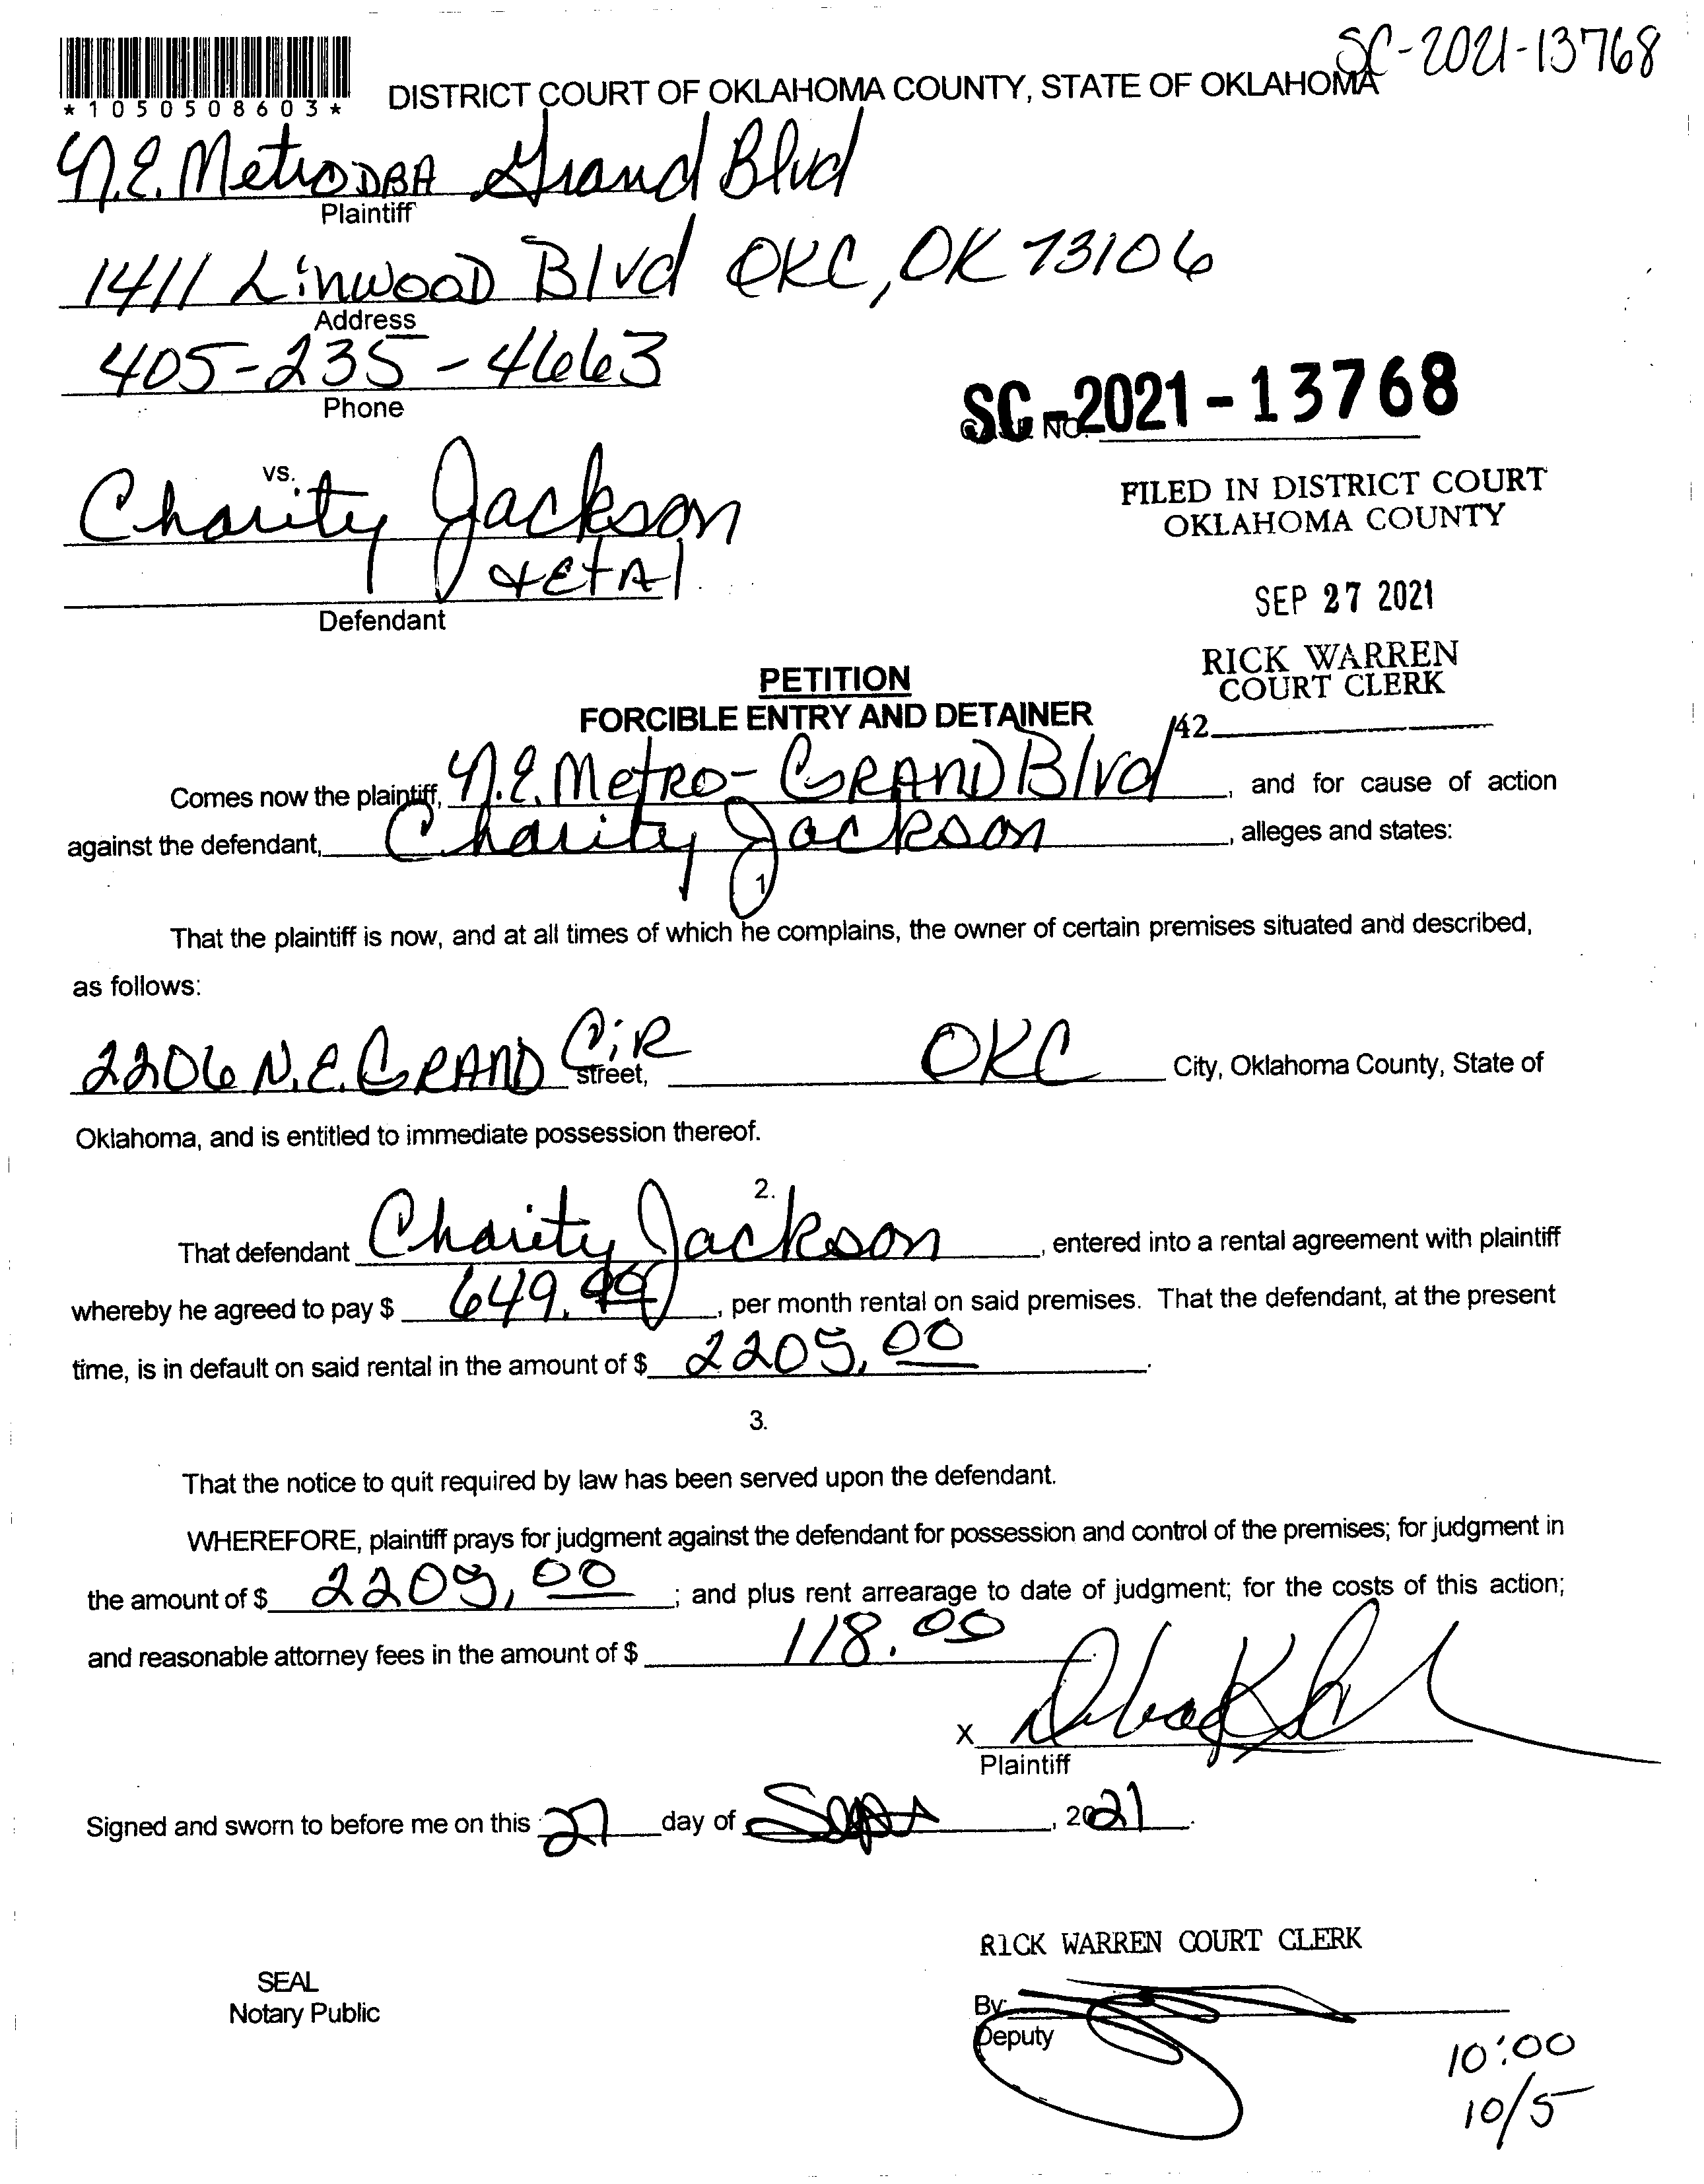 SC-2021-13768
*1050508603*
DISTRICT COURT OF OKLAHOMA COUNTY, STATE OF OKLAHOMA
N.E. Metro DBA Grand Blvd
Plaintiff
1411 Linwood Blvd OKC, OK 73106
Address
405-235-4663
Phone
SC-2021-13768
NO.
vs.
Charity Jackson
& Et Al
Defendant
FILED IN DISTRICT COURT
OKLAHOMA COUNTY
SEP 27 2021
RICK WARREN
COURT CLERK
42
PETITION
FORCIBLE ENTRY AND DETAINER
Comes now the plaintiff, N.E. Metro- Grand Blvd, and for cause of action
against the defendant, Charity Jackson, alleges and states:
1
That the plaintiff is now, and at all times of which he complains, the owner of certain premises situated and described,
as follows:
2206 N.E. Grand Cir street, OKC City, Oklahoma County, State of
Oklahoma, and is entitled to immediate possession thereof.
2.
That defendant Charity Jackson, entered into a rental agreement with plaintiff
whereby he agreed to pay $ 649., per month rental on said premises. That the defendant, at the present
time, is in default on said rental in the amount of $ 2205.00.
3.
That the notice to quit required by law has been served upon the defendant.
WHEREFORE, plaintiff prays for judgment against the defendant for possession and control of the premises; for judgment in
the amount of $ 2205.00; and plus rent arrearage to date of judgment; for the costs of this action;
and reasonable attorney fees in the amount of $ 118.00.
X
Plaintiff
Signed and sworn to before me on this 27 day of Sept, 2021.
RICK WARREN COURT CLERK
SEAL
Notary Public
By:
Deputy
10:00
10/5